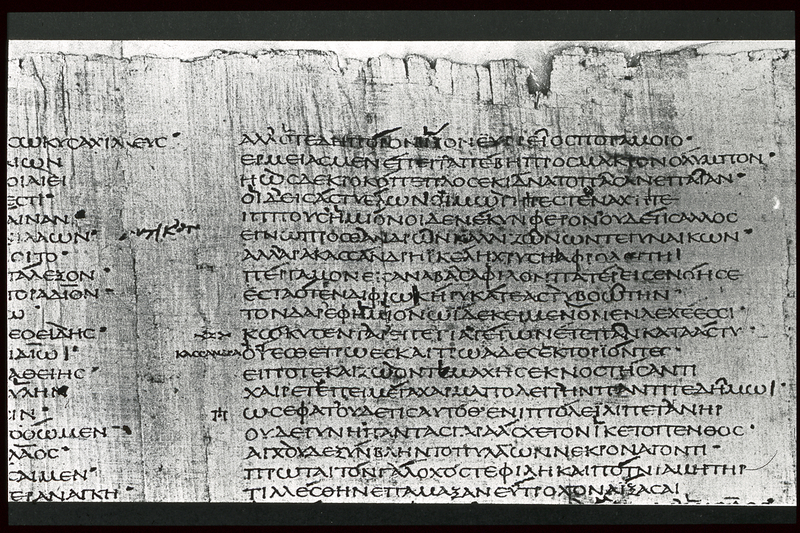 ϹΩΚΥϹΑΧΙΛΛΕΥϹ
ΑΙΩΝ
ΟΙΑΙΕΙ
ΕϹΤΙ
ΑΙΝΑΝ
ΙΛΑΩΝ
ϹΙΤΟ
ΤΑΛΕΞΟΝ
ΤΟΡΑΔΙΟΝ
Ω
ΕΟΕΙΔΗϹ
ΙΔΙΩΙ
ΑΘΕΙΗϹ
ΥΛΗΝ
ΙΝ
ΟΩΜΕΝ
ΛΑΟϹ
ϹΑΙΜΕΝ
ΓΕΡΑΝΑΓΚΗ
ΚΑϹϹΑΝΔΡΑ
ΑΛΛΟΤΕΔΗΠΟΡΟΝΙΞΟΝΕΥΡΡΕΙΟϹΠΟΤΑΜΟΙΟ
ΕΡΜΕΙΑϹΜΕΝΕΠΕΙΤΑΠΕΒΗΠΡΟϹΜΑΚΡΟΝΟΛΥΜΠΟΝ
ΗΩϹΔΕΚΡΟΚΟΠΕΠΛΟϹΕΚΙΔΝΑΤΟΠΑϹΑΝΕΠΑΙΑΝ
ΟΙΔΕΙϹΑϹΤΥΕΛΩΝΟΙΜΩΓΗΤΕϹΤΕΝΑΧΗΤΕ
ΙΠΠΟΥϹΗΜΙΟΝΟΙΔΕΝΕΚΥΝΦΕΡΟΝΟΥΔΕΤΙϹΑΛΛΟϹ
ΕΓΝΩΠΡΟϹΘΑΝΔΡΩΝΚΑΛΛΙΖΩΝΩΝΤΕΓΥΝΑΙΚΩΝ
ΑΛΛΑΡΑΚΑϹϹΑΝΔΡΗΙΚΕΛΗΧΡΥϹΗΑΦΡΟΔΕΙΤΗΙ
ΠΕΡΓΑΜΟΝΕΙϹΑΝΑΒΑϹΑΦΙΛΟΝΠΑΤΕΡΕΙϹΕΝΟΗϹΕ
ΕϹΤΑΟΤΕΝΔΙΦΡΩΚΗΡΥΚΑΤΕΑϹΤΥΒΟΩΤΗΝ
ΤΟΝΔΑΡΕΦΗΜΙΟΝΩΙΔΕΚΕΙΜΕΝΟΝΕΝΛΕΧΕΕϹϹΙ
ΚΩΚΥϹΕΝΤΑΡΕΠΕΙΤΑΓΕΓΩΝΕΤΕΠΑΝΚΑΤΑΑϹΤΥ
ΟΨΕϹΘΕΤΡΩΕϹΚΑΙΤΡΩΑΔΕϹΕΚΤΟΡΙΟΝΤΕϹ
ΕΙΠΟΤΕΚΑΙΖΩΟΝΤΙΜΑΧΗϹΕΚΝΟϹΤΗϹΑΝΤΙ
ΧΑΙΡΕΤΕΠΕΙΜΕΓΑΧΑΡΜΑΠΟΛΕΙΤΗΝΠΑΝΤΙΤΕΔΗΜΩΙ
ΩϹΕΦΑΤΟΥΔΕΤΙϹΑΥΤΟΘΕΝΙΠΤΟΛΕΙΛΙΠΕΤΑΝΗΡ
ΟΥΔΕΓΥΝΗΠΑΝΤΑϹΓΑΡΑΑϹΧΕΤΟΝΙΚΕΤΟΠΕΝΘΟϹ
ΑΓΧΟΥΔΕΞΥΝΒΛΗΝΤΟΠΥΛΑΩΝΝΕΚΡΟΝΑΓΟΝΤΙ
ΠΡΩΤΑΙΤΟΝΓΑΛΟΧΟϹΤΕΦΙΛΗΚΑΙΠΟΤΝΙΑΜΗΤΗΡ
ΤΙΛΛΕϹΘΗΝΕΠΑΜΑΞΑΝΕΥΤΡΟΧΟΝΑΙΞΑϹΑΙ